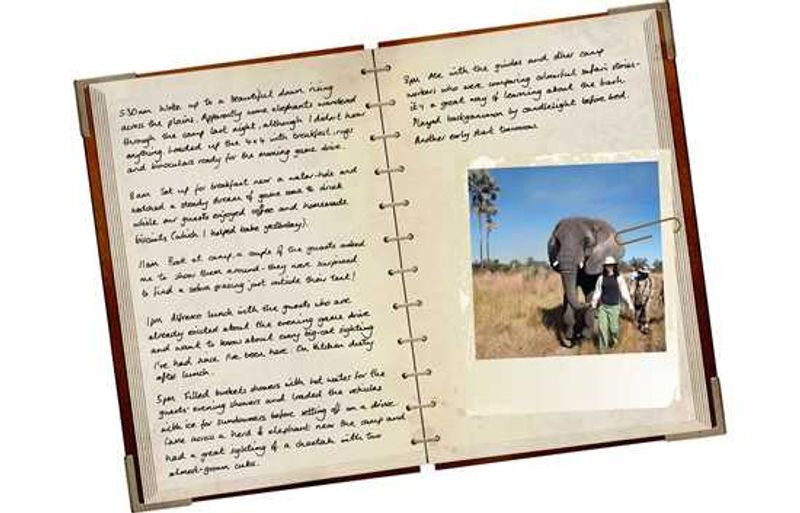 5:30am Woke up to a beautiful dawn rising
across the plains. Apparently some elephants wandered
through the camp last night, although I didn't hear
anything. Loaded up the 4x4 with breakfast, rugs
and binoculars ready for the morning game drive.
8am Set up for breakfast near a water-hole and
watched a steady stream of game come to drink
while our guests enjoyed coffee and homemade
biscuits (which I helped bake yesterday).
11am Back at camp, a couple of the guests asked
me to show them around - they were surprised
to find a zebra grazing just outside their tent!
1pm Alfresco lunch with the guests who are
already excited about the evening game drive
and want to know about every big-cat sighting
I've had since I've been here. On kitchen duty
after lunch.
5pm Filled buckets showers with hot water for the
guests' evening showers and loaded the vehicles
with ice for sundowners before setting off on a drive.
Came across a herd of elephant near the camp and
had a great sighting of a cheetah with two
almost-grown cubs.
8pm Ate with the guides and other camp
workers who were comparing colourful safari stories -
it's a great way of learning about the bush.
Played backgammon by candlelight before bed.
Another early start tomorrow.